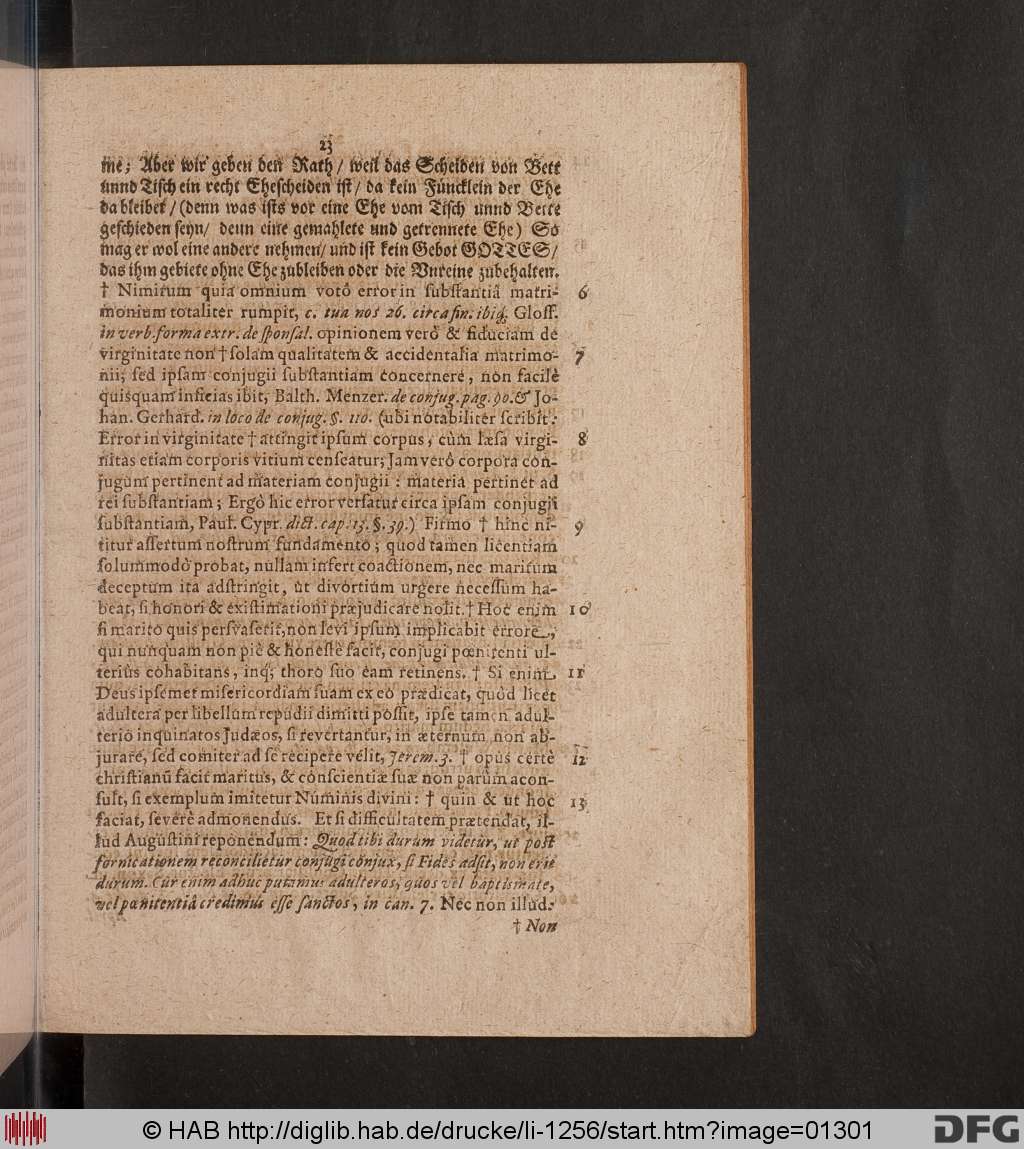 23
me; Aber wir geben den Rath / weil das Scheiden von Bett
unnd Tisch ein recht Ehescheiden ist / da kein Füncklein der Ehe
da bleibet / (denn was ists vor eine Ehe vom Tisch unnd Bette
geschieden seyn / denn eine gemahlete und getrennete Ehe) So
mag er wol eine andere nehmen / und ist kein Gebot GOTTES /
das ihm gebiete ohne Ehe zubleiben oder die Vnreine zubehalten.
† Nimirum quia omnium votô error in substantiâ matri- 6
monium totaliter rumpit, c. tua nos 26. circa fin. ibiq; Gloss.
in verb. forma extr. de sponsal. opinionem verò & fiduciam de
virginitate non † solam qualitatem & accidentalia matrimo- 7
nii; sed ipsam conjugii substantiam concernere, non facilè
quisquam inficias ibit, Balth. Menzer. de conjug. pag. 90. & Jo-
han. Gerhard. in loco de conjug. §. 110. (ubi notabiliter scribit:
Error in virginitate † attingit ipsum corpus, cùm læsa virgi- 8
nitas etiam corporis vitium censeatur; Jam verò corpora con-
jugum pertinent ad materiam conjugii: materia pertinet ad
rei substantiam; Ergò hic error versatur circa ipsam conjugii
substantiam, Paul. Cypr. dict. cap. 13. §. 39.) Firmo † hinc ni- 9
titur assertum nostrum fundamento; quod tamen licentiam
solummodò probat, nullam infert coactionem, nec maritum
deceptum ita adstringit, ut divortium urgere necessum ha-
beat, si honori & existimationi præjudicare nolit. † Hoc enim 10
si marito quis persvaserit, non levi ipsum implicabit errore,
qui nunquam non piè & honestè facit, conjugi pœnitenti ul-
terius cohabitans, inq; thoro suo eam retinens. † Si enim 11
Deus ipsemet misericordiam suam ex eo prædicat, quòd licet
adultera per libellum repudii dimitti possit, ipse tamen adul-
terio inquinatos Judæos, si revertantur, in æternum non ab-
jurare, sed comiter ad se recipere velit, Jerem. 3. † opus certè 12
christianũ facit maritus, & conscientiæ suæ non parùm acon-
sult, si exemplum imitetur Numinis divini: † quin & ut hoc 13
faciat, severè admonendus. Et si difficultatem prætendat, il-
lud Augustini reponendum: Quod tibi durum videtur, ut post
fornicationem reconcilietur conjugi conjux, si Fides adsit, non erit
durum. Cur enim adhuc putamus adulteros, quos vel baptismate,
vel pœnitentiâ credimus esse sanctos, in can. 7. Nec non illud:
† Non
© HAB http://diglib.hab.de/drucke/li-1256/start.htm?image=01301
DFG